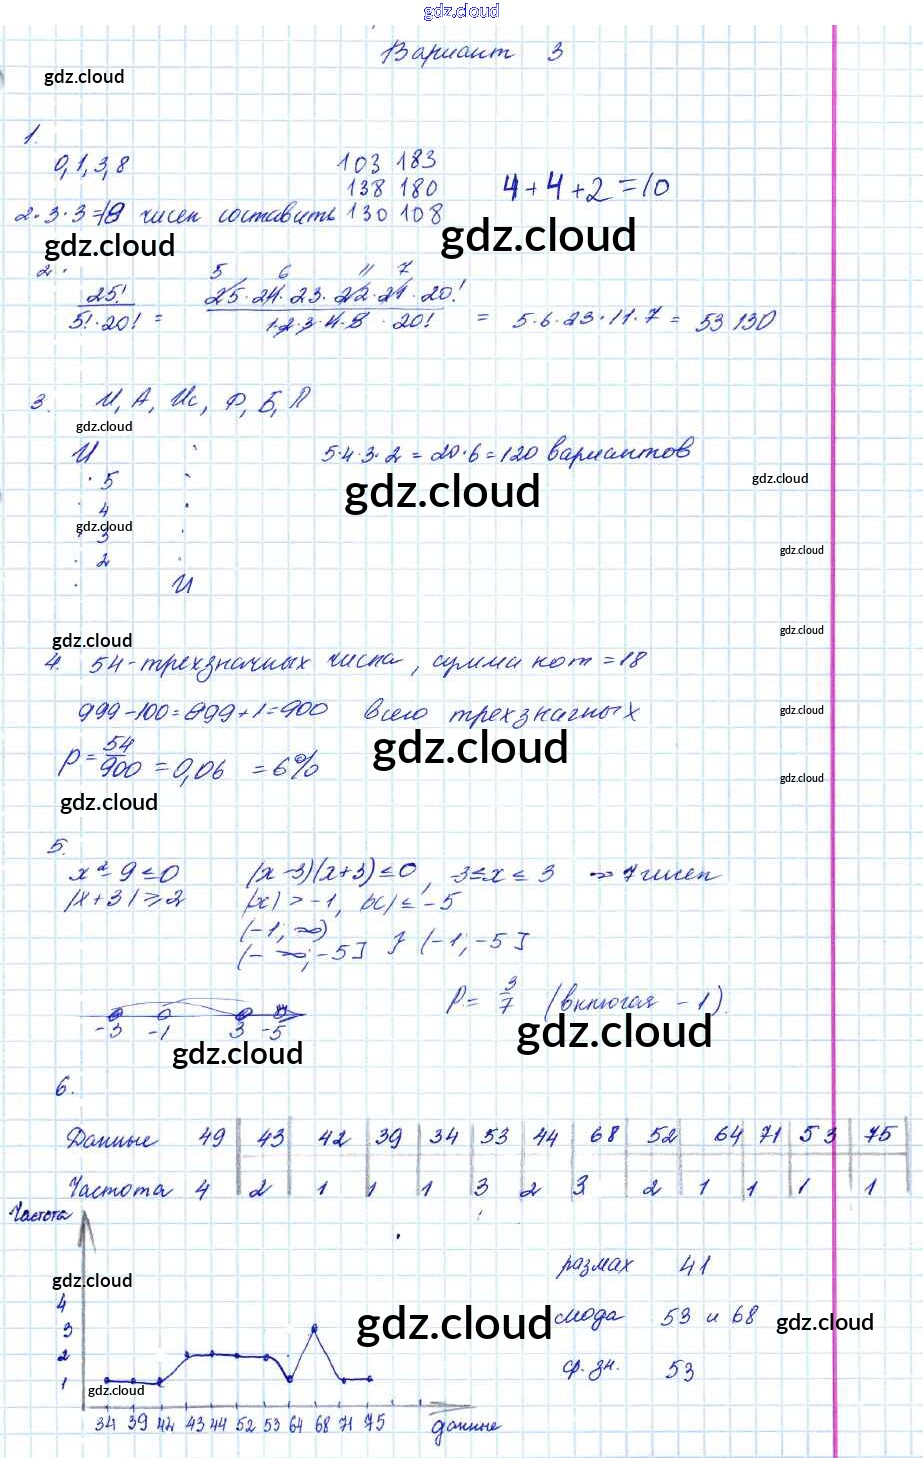 gdz.cloud
Вариант 3
gdz.cloud
1.
0, 1, 3, 8
103 183
138 180
4 + 4 + 2 = 10
2·3·3=18 чисел составить 130 108
gdz.cloud
gdz.cloud
2.
5 6 11 7
25! / 5!·20! = 25·24·23·22·21·20! / 1·2·3·4·5·20! = 5·6·23·11·7 = 53 130
3. И, А, Ис, Ф, Б, Л
gdz.cloud
И
5·4·3·2 = 20·6 = 120 вариантов
· 5
gdz.cloud
gdz.cloud
· 4
gdz.cloud
· 3
gdz.cloud
· 2
· И
gdz.cloud
gdz.cloud
4. 54 - трехзначных числа, сумма кот = 18
999 - 100 = 899 + 1 = 900 всего трехзначных
gdz.cloud
gdz.cloud
P = 54/900 = 0,06 = 6%
gdz.cloud
gdz.cloud
5.
x² - 9 ≤ 0 (x - 3)(x + 3) ≤ 0, 3 ≤ x ≤ 3 → 7 чисел
|x + 3| ≥ 2 |x| > -1, |x| ≤ -5
(-1; ∞)
(-∞; -5] } (-1; -5]
P = 3/7 (включая -1).
-3 -1 3 -5
gdz.cloud
gdz.cloud
6.
Данные 49 43 42 39 34 53 44 68 52 64 71 53 75
Частота 4 2 1 1 1 3 2 3 2 1 1 1 1
Частота
размах 41
gdz.cloud
4
мода 53 и 68
gdz.cloud
gdz.cloud
3
2
ср. зн. 53
1
gdz.cloud
34 39 42 43 44 52 53 64 68 71 75 данные